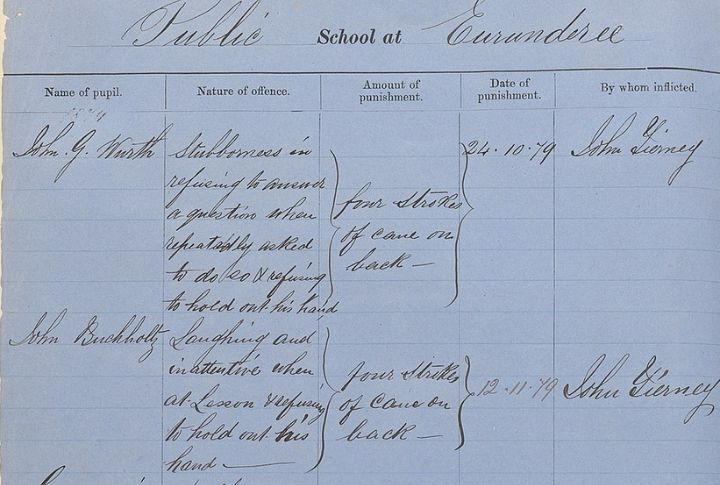 Public School at Eurunderee
Name of pupil. Nature of offence. Amount of punishment. Date of punishment. By whom inflicted.
1879
John. G. Wurth Stubborness in 24.10.79 John Tierney
refusing to answer
a question when four strokes
repeatedly asked of cane on
to do so & refusing back —
to hold out his hand
John Buchholtz Laughing and
inattentive when four strokes 12.11.79 John Tierney
at Lesson & refusing of cane on
to hold out his back —
hand —